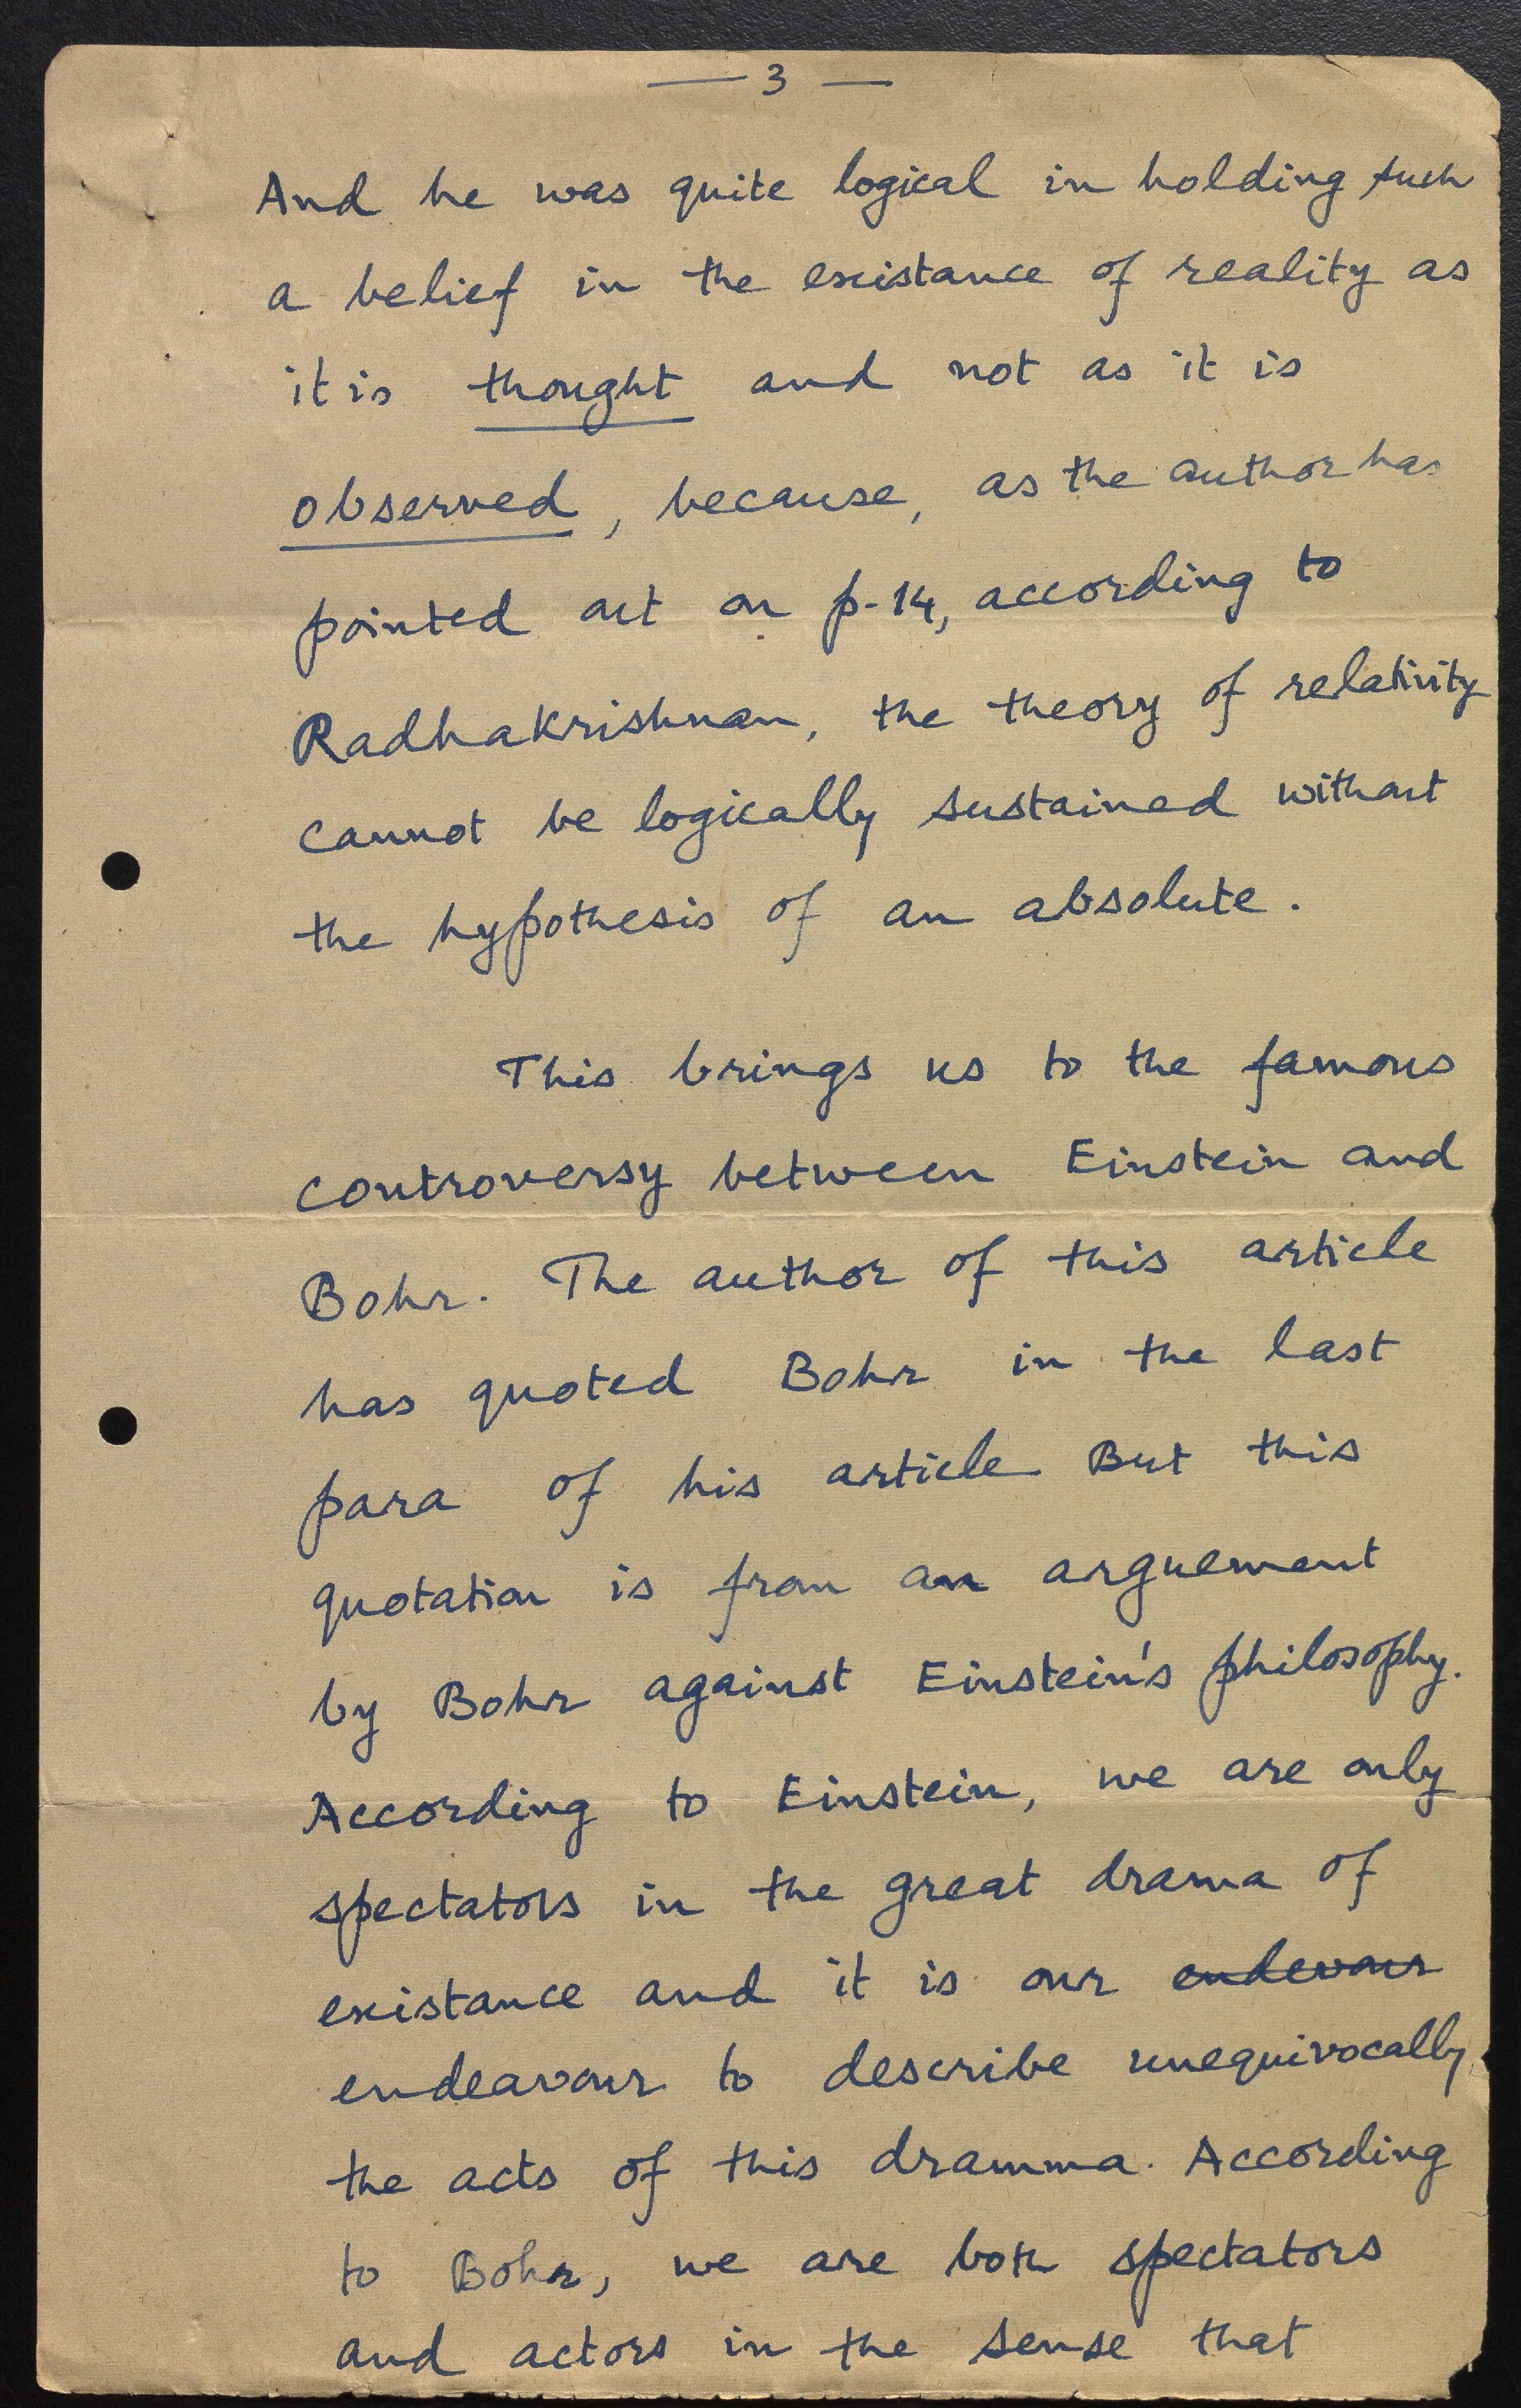 — 3 —
And he was quite logical in holding such
a belief in the existance of reality as
it is thought and not as it is
observed, because, as the author has
pointed out on p-14, according to
Radhakrishnan, the theory of relativity
cannot be logically sustained without
the hypothesis of an absolute.
This brings us to the famous
controversy between Einstein and
Bohr. The author of this article
has quoted Bohr in the last
para of his article But this
quotation is from an arguement
by Bohr against Einstein's philosophy.
According to Einstein, we are only
spectators in the great drama of
existance and it is our endevour
endeavour to describe unequivocally
the acts of this dramma. According
to Bohr, we are both spectators
and actors in the sense that